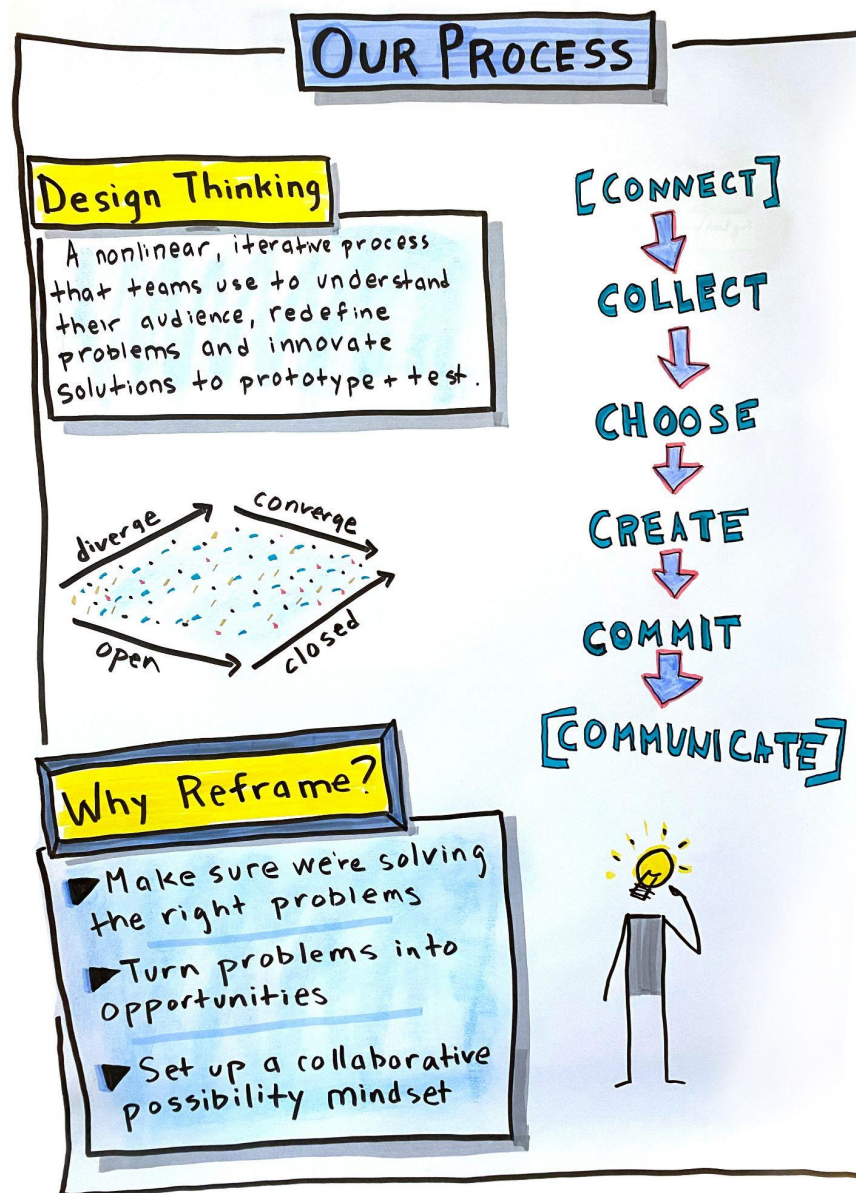 OUR PROCESS
Design Thinking
A nonlinear, iterative process
that teams use to understand
their audience, redefine
problems and innovate
solutions to prototype + test.
diverge
converge
open
closed
Why Reframe?
Make sure we're solving
the right problems
Turn problems into
opportunities
Set up a collaborative
possibility mindset
[CONNECT]
COLLECT
CHOOSE
CREATE
COMMIT
[COMMUNICATE]